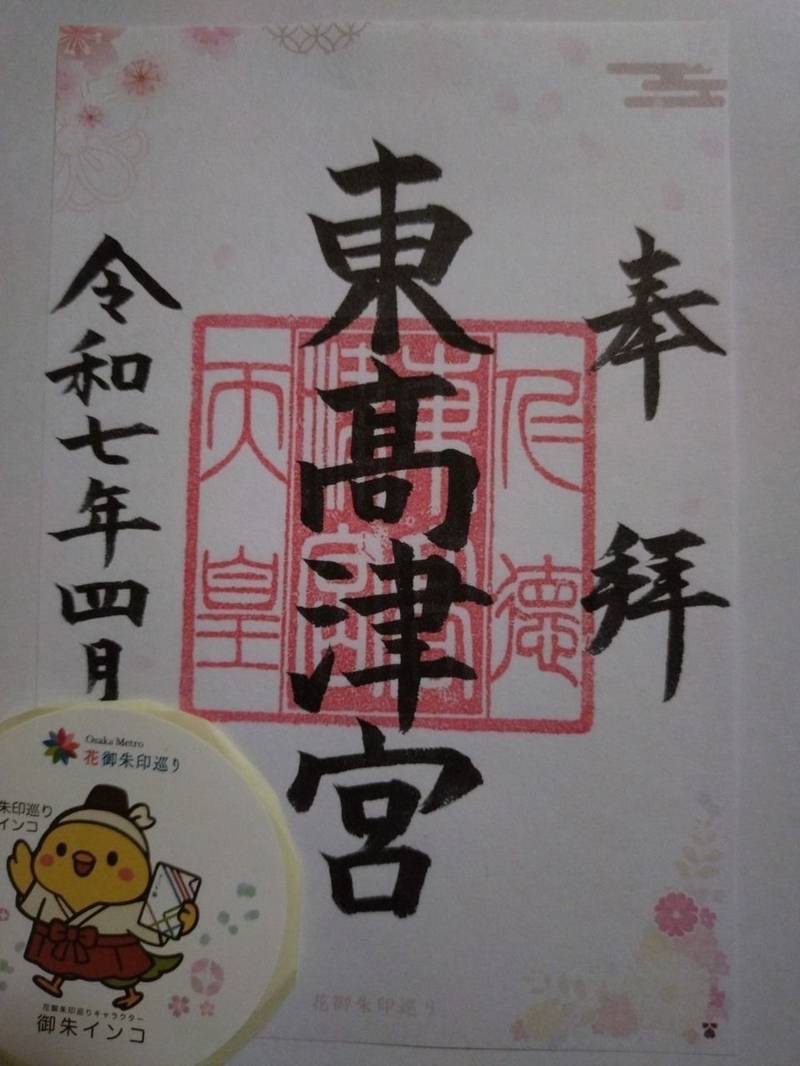 奉拝
東髙津宮
仁徳
東高津宮
天皇
令和七年四月
Osaka Metro
花御朱印巡り
朱印巡り
インコ
花御朱印巡りキャラクター
御朱インコ
花御朱印巡り